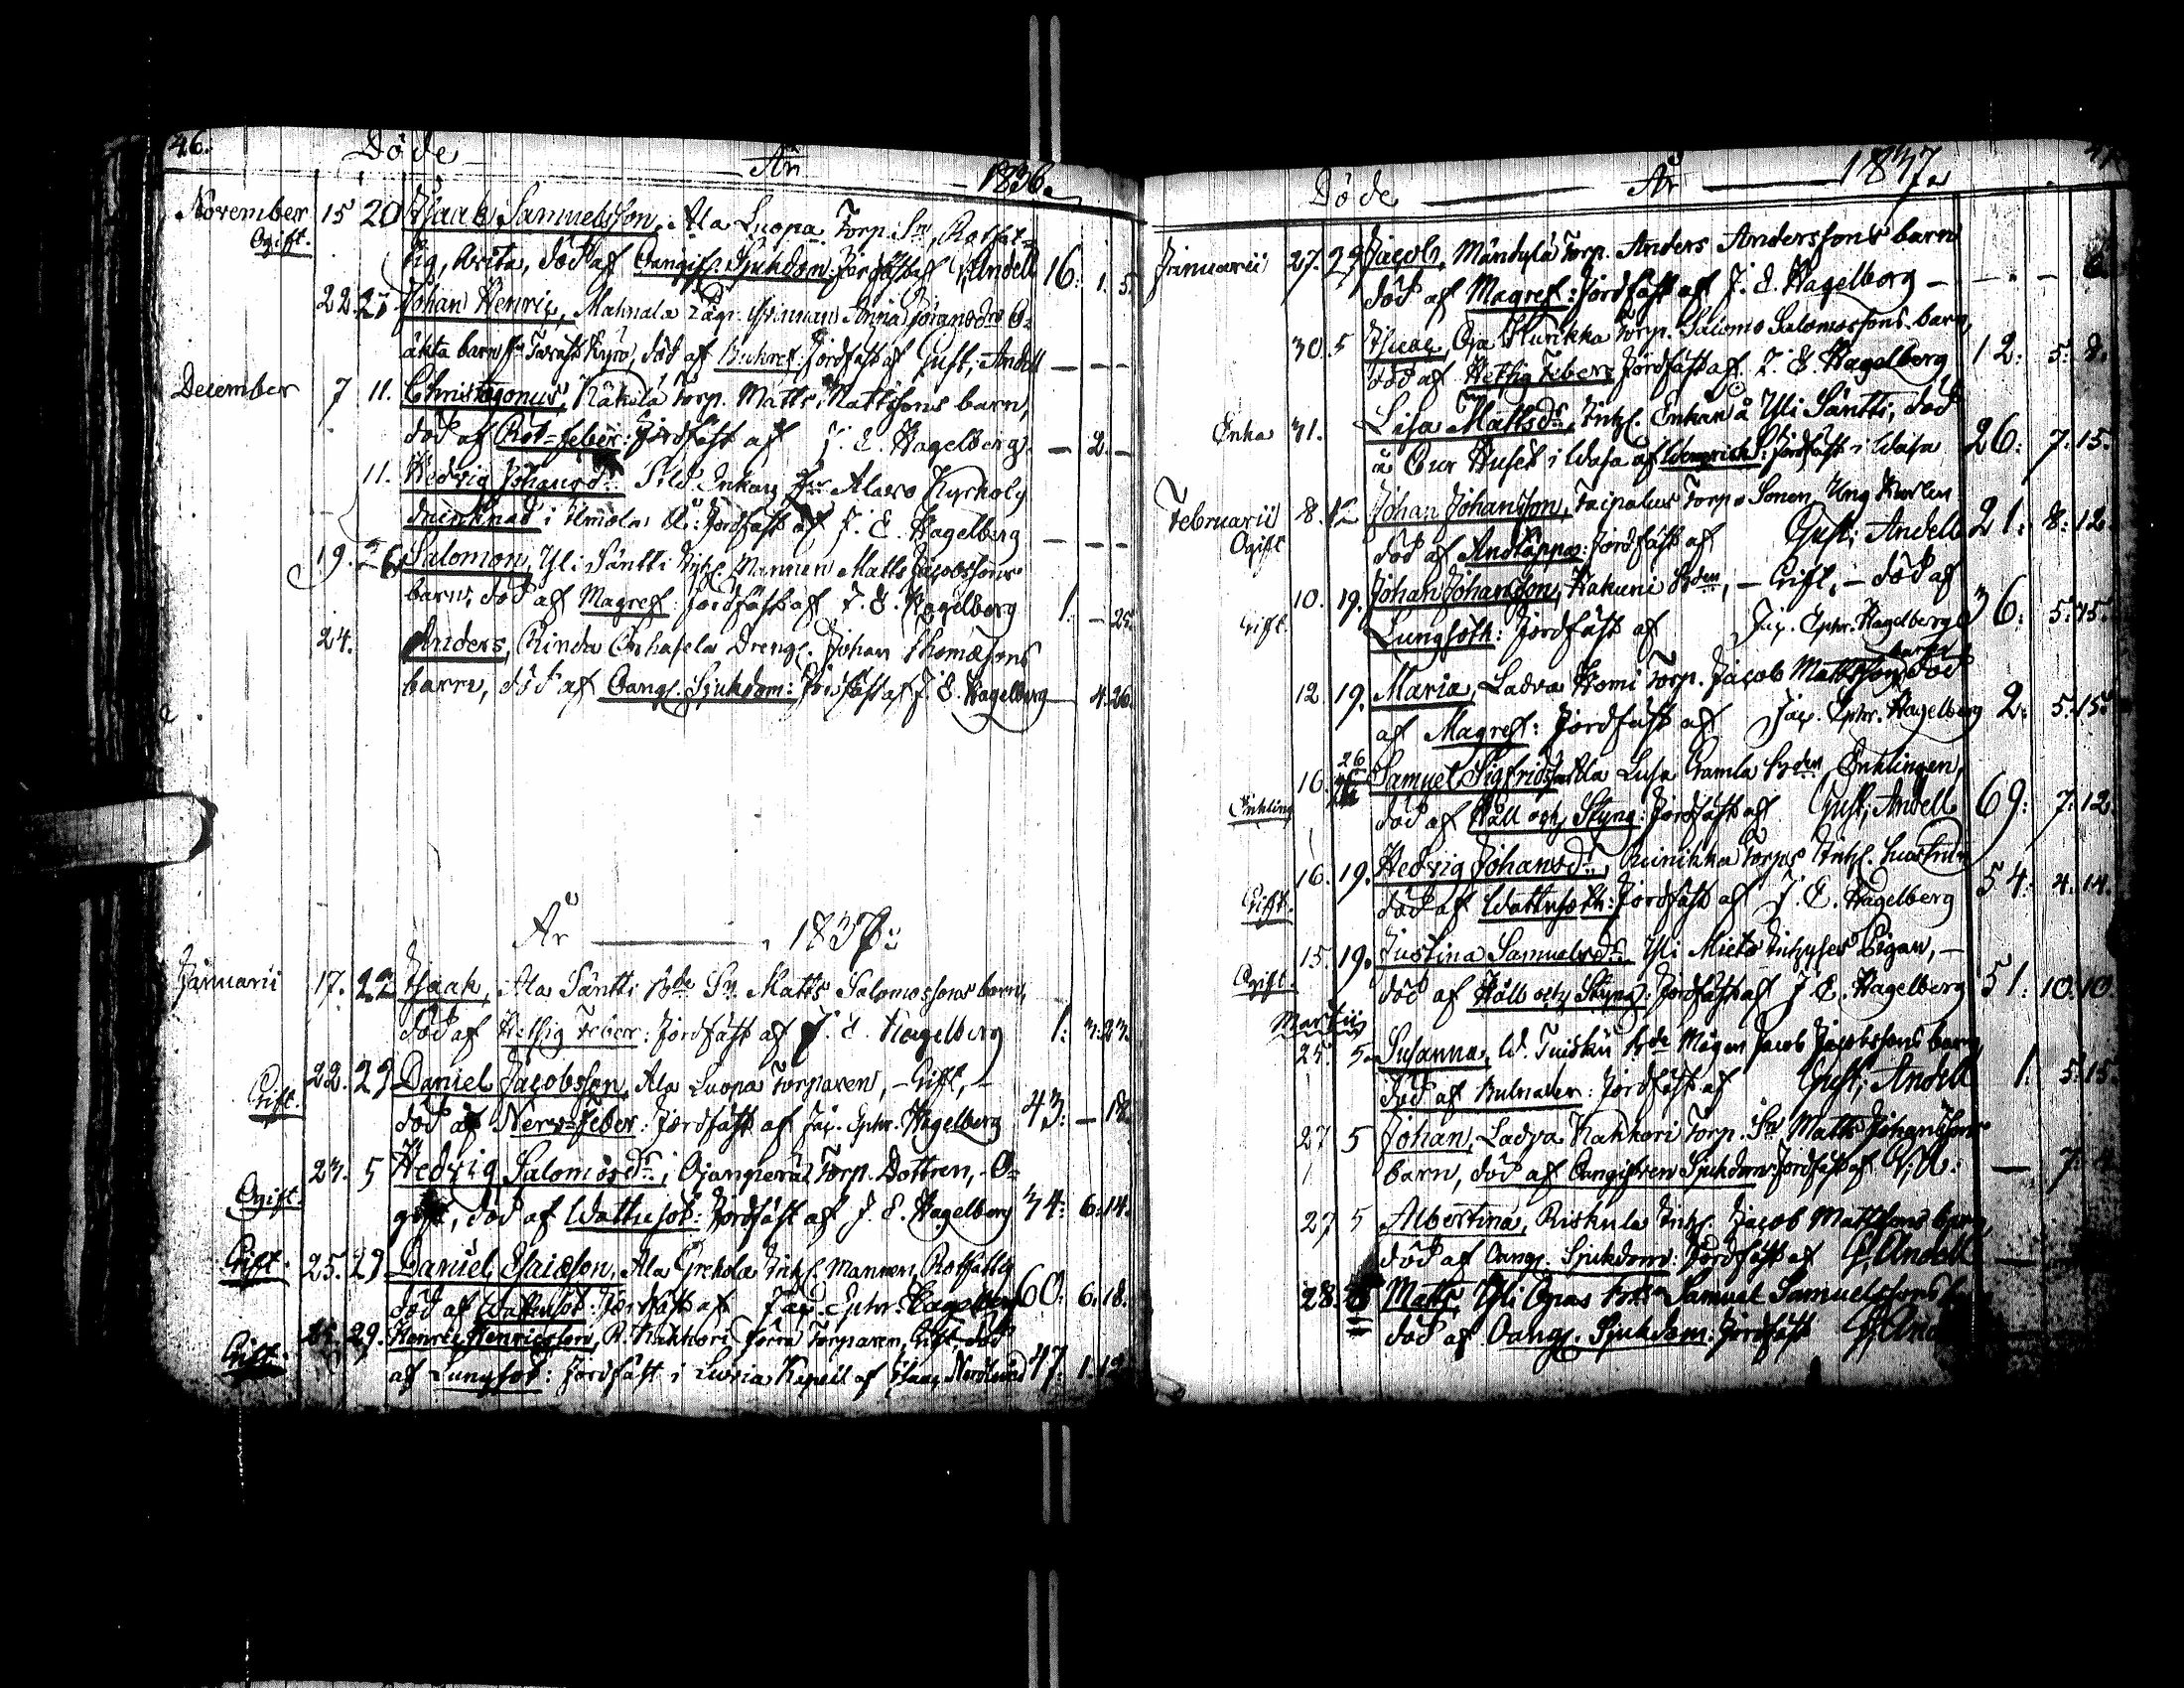 46.
Döde År 1836.
November 15 20 Isaak Samuelsson, Ala Luopa Torp. Sn, Rotfat-
Ogift.
tig, Avita, död af Oangif. Sjukdom: Jordfäst af G. Andell 16: 1. 5.
22. 27. Johan Henric, Mahnala Anna Joransdr O-
äkta barn Kyro, död af Jordfäst af Gust. Andell — — —
December 7 11. Chrisogonus, Käkelä Torp. Matts Mattssons barn,
död af Röt-feber: Jordfäst af J. E. Hagelberg. — 2. —
11. Hedvig Johansdr Enkan Alavo
drunknad i Jordfäst af J. E. Hagelberg — — —
19. 26. Salomon, Yli Säntti Inh. Mannen Matts Jacobssons
barn, död af Magref. Jordfäst af J. E. Hagelberg 1. — 25.
24. Anders, Rinda Drengs. Johan Thomæsons
barn, död af Oang. Sjukdom: Jordfäst af J. E. Hagelberg — 4. 26.
År 1837.
Januarii 17. 22 Isaak, Ala Säntti Bde Sn Matts Salomossons barn,
död af Hetsig Feber: Jordfäst af J. E. Hagelberg 1: 3: 23.
22. 29 Daniel Jacobsson, Ala Luopa Torparen, — Gift, —
Gift.
död af Nerv-feber: Jordfäst af Jac. Ephr. Hagelberg 43: — 18.
23. 5 Hedvig Salomosdr, Ojanperä Torp. Dottren, O-
Ogift.
gift, död af Wattusot: Jordfäst af J. E. Hagelberg 34: 6: 14.
Gift. 25. 29 Daniel Esaiæson, Ala Grekola Inh. Mannen, Rotfattig
död af Wattusot: Jordfäst af Jac. Ephr. Hagelberg 60: 6: 18.
29. Henric Henricsson, Kakkori förra Torparen, Gift, död
Gift.
af Lungsot: Jordfäst i Kapell af Isaac Nordlund 47: 1. 12.
Döde År 1837.
Januarii 27. 29 Jacob, Mändylä Torp. Anders Anderssons barn
död af Magref: Jordfäst af J. E. Hagelberg — — — 6.
30. 5 Isaac, Oja Hunkka Torp. Salomo Salomossons barn,
död af Hetsig Feber: Jordfäst af J. E. Hagelberg 12: 5: 8.
Enka 31. Lisa Mattsdr, Inh. Enkan å Yli Säntti, död
å Cur Huset i Wasa af Jordfäst i Wasa 26: 7: 15.
Februarii 8. 12 Johan Johansson, Taipalus Torp. Sonen, Ung Karlen
Ogift
död af Andtäppa: Jordfäst af Gust. Andell 21: 8: 12.
10. 19. Johan Johansson, Hakuni Bden, — Gift, — död af
Gift.
Lungsoth: Jordfäst af Jac. Ephr. Hagelberg 36: 5: 15.
barn
12. 19. Maria, Ladva Homi Torp. Jacob Mattssons, död
af Magref: Jordfäst af Jac. Ephr. Hagelberg 2: 5: 15.
26
16. Samuel Sigfridsson, Ala Lusa Gamla Bden, Enklingen,
Enkling
död af Håll och Styng: Jordfäst af Gust. Andell 69: 7: 12.
16. 19. Hedvig Johansdr, Torps Inh. hustrun
Gift.
död af Wattusoth: Jordfäst af J. E. Hagelberg 54: 4: 14.
15. 19. Justina Samuelsdr, Yli Mieto Inhyses Pigan, —
Ogift.
död af Håll och Styng: Jordfäst af J. E. Hagelberg 51: 10: 10.
Martii
25. 5. Susanna, W. Tuisku Bde Mågen Jacob Jacobssons barn,
död af Jordfäst af Gust. Andell 1: 5: 15.
27 5 Johan, Ladva Kakkori Torp. Sn Matts Johanssons
barn, död af Oangifven Sjukdom: Jordfäst af G. A: — 7:
27 5 Albertina, Riskula Inh. Jacob Mattssons barn,
död af Oang. Sjukdom: Jordfäst af G. Andell
28. Matts, Yli Samuel Samuelssons
död af Oang. Sjukdom: Jordfäst G.